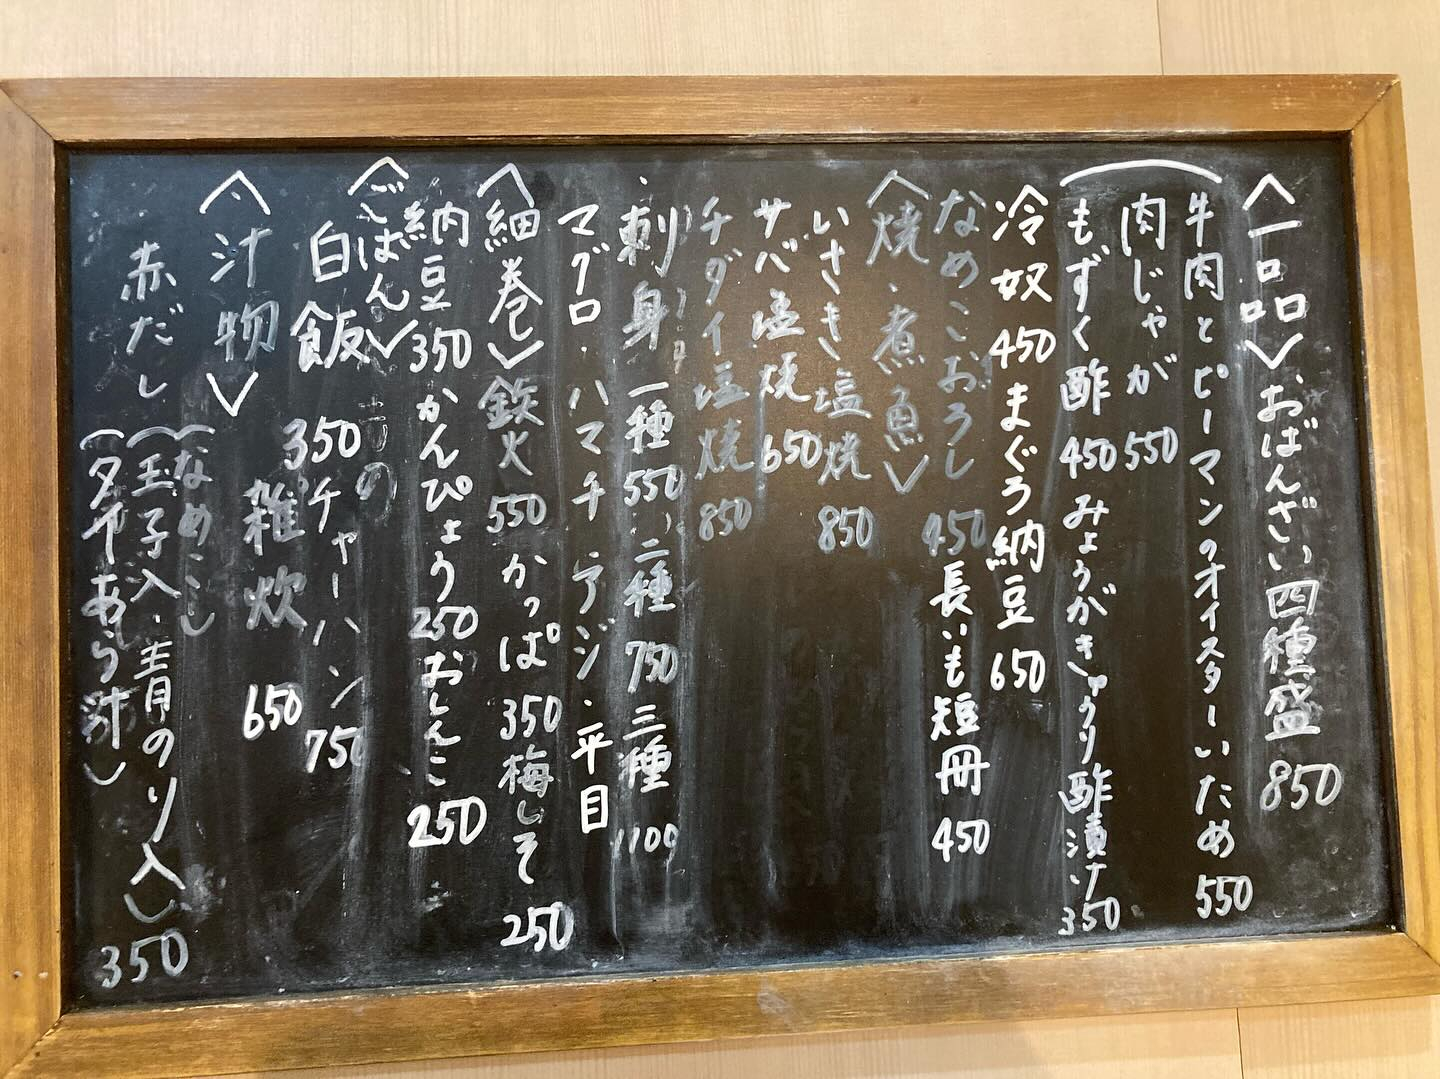 〈一品〉おばんざい四種盛 850
牛肉とピーマンのオイスターいため 550
肉じゃが 550
もずく酢 450 みょうがきゅうり酢漬け 350
冷奴 450 まぐろ納豆 650
なめこおろし 450 長いも短冊 450
〈焼・煮魚〉
いさき塩焼 850
サバ塩焼 650
チダイ塩焼 850
刺身 一種 550 二種 750 三種 1100
マグロ・ハマチ・アジ・平目
〈細巻〉鉄火 550 かっぱ 350 梅しそ 250
納豆 350 かんぴょう 250 おしんこ 250
〈ごはん〉
白飯 350 チャーハン 750
雑炊 650
〈汁物〉
赤だし (なめこ)
(玉子入・青のり入) 350
(タイあら汁)